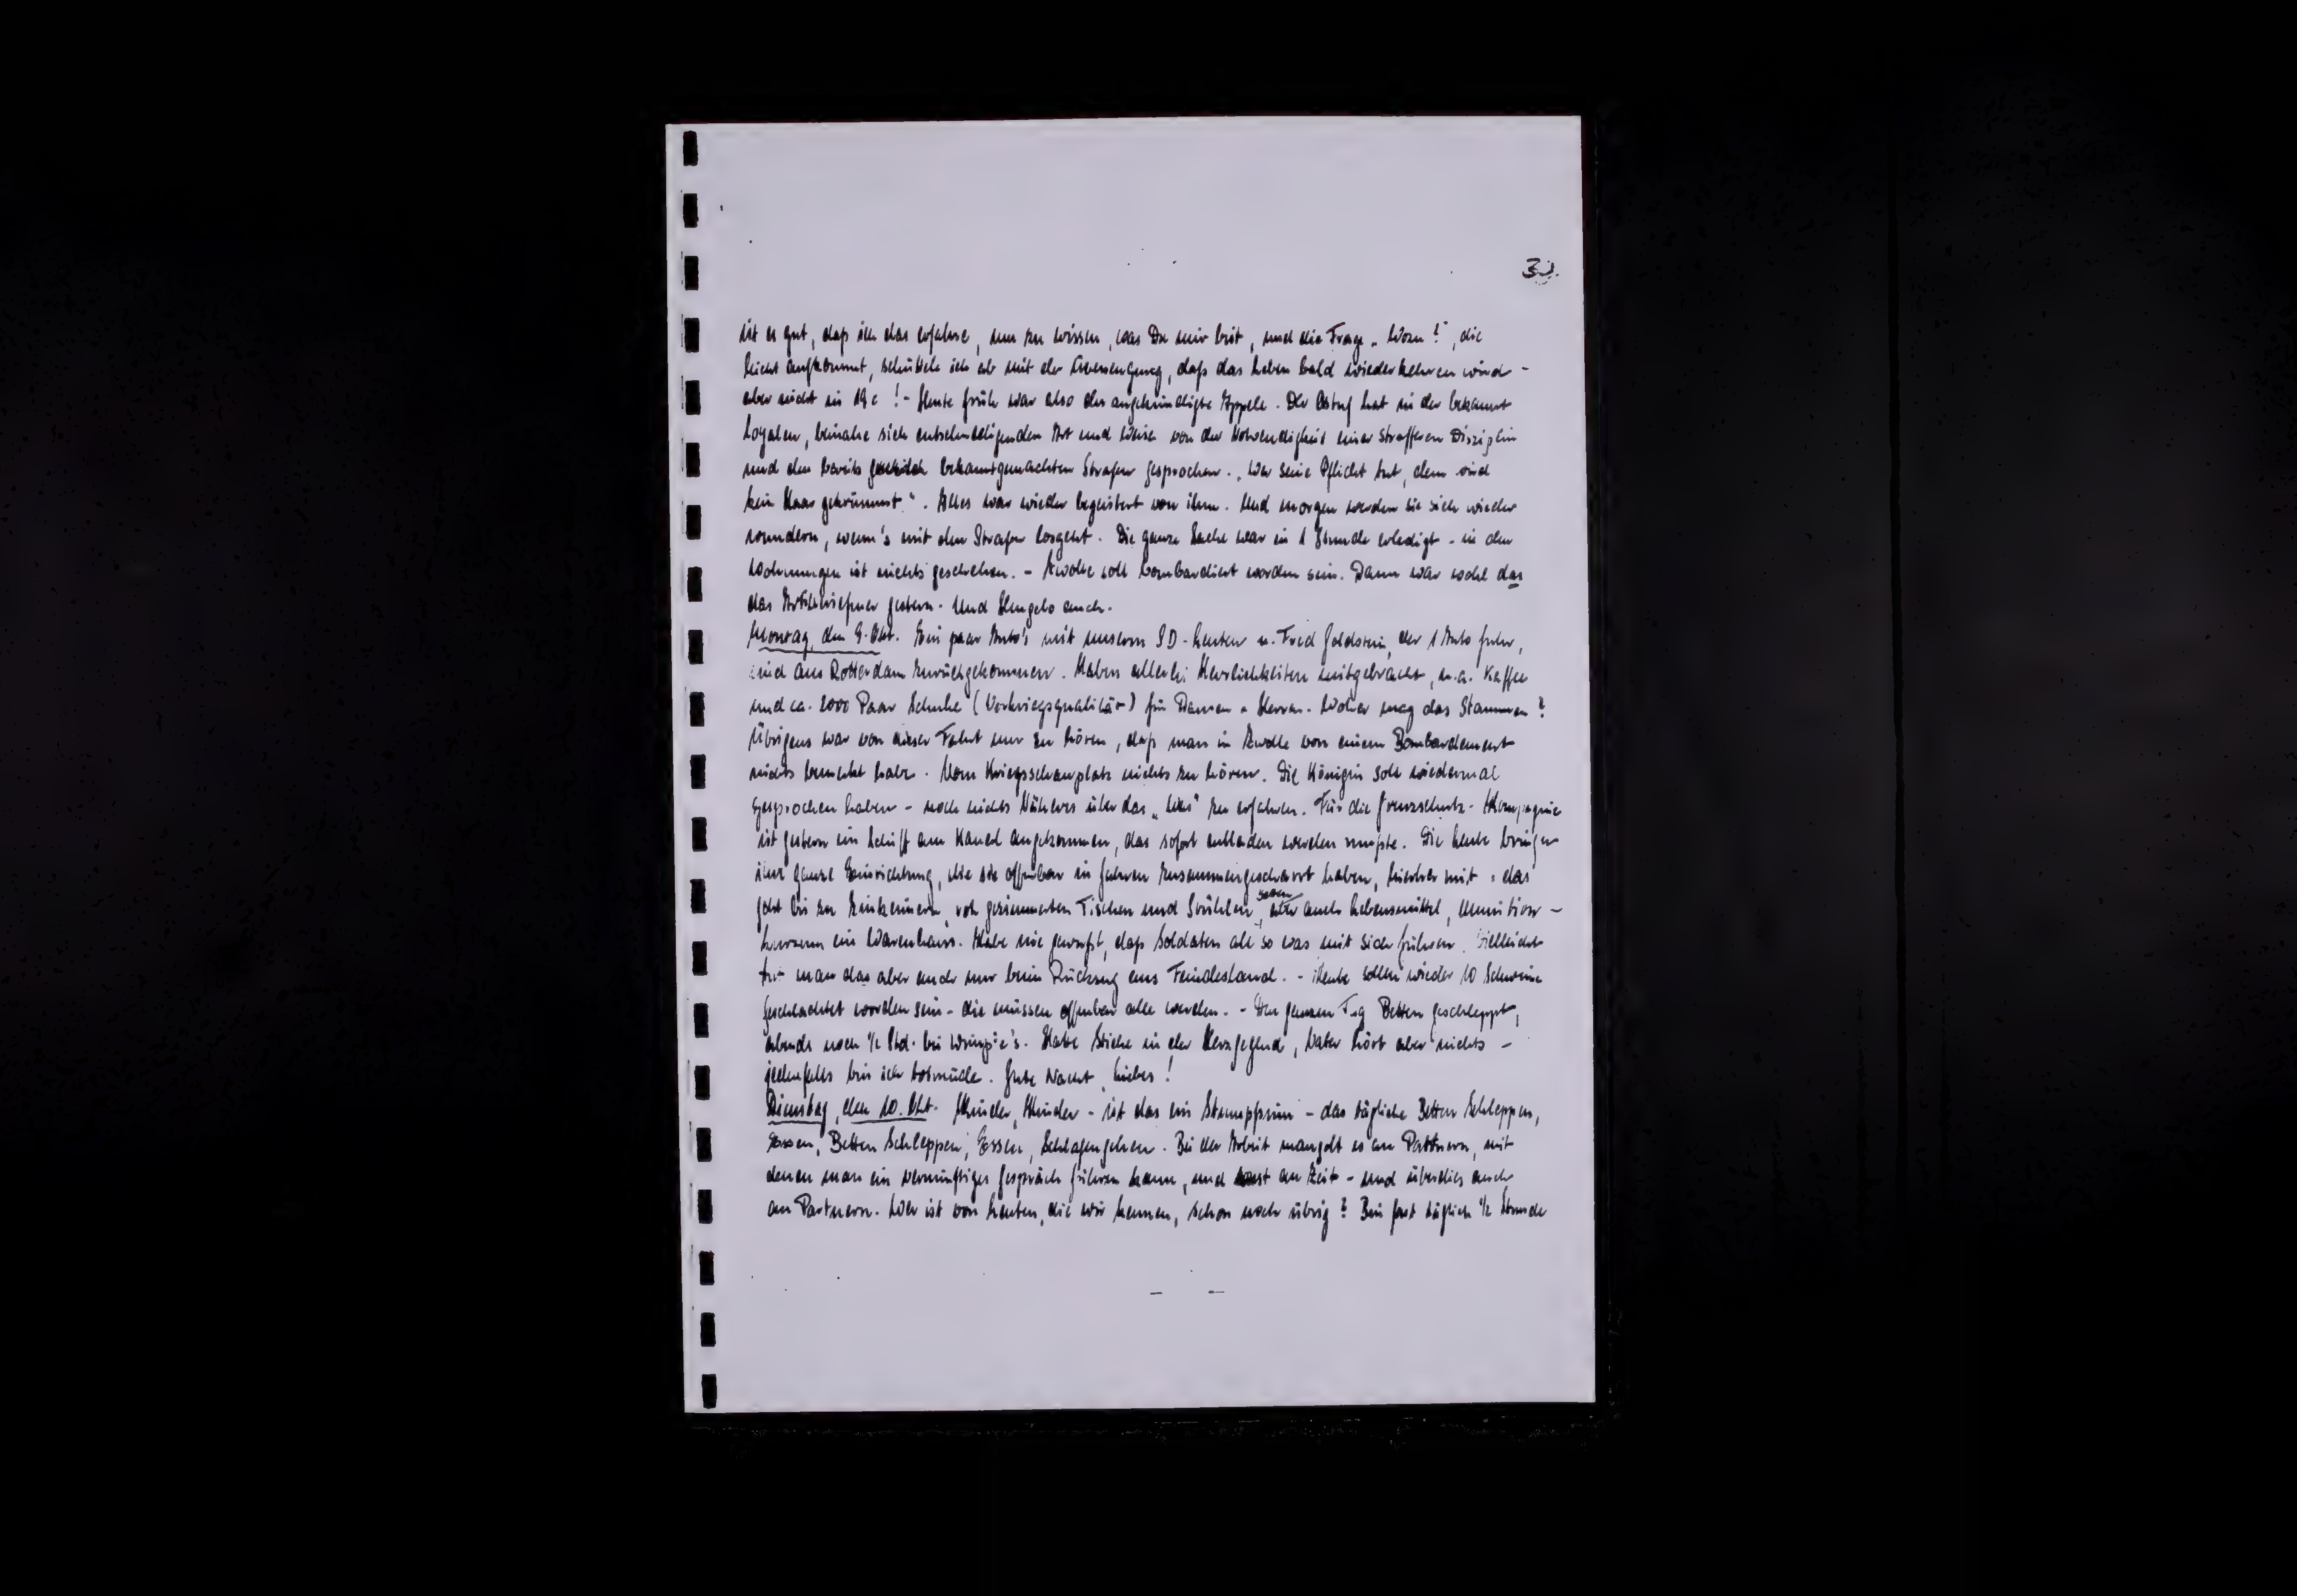 30.
ist es gut, daß ich das erfahre, um zu wissen, was Du mir bist, und die Frage „Wozu?", die
leicht aufkommt, schüttele ich ab mit der Überzeugung, daß das Leben bald wiederkehren wird -
aber nicht in 19c! - Heute früh war also der angekündigte Appell. Der Ostuf hat in der bekannt
loyalen, beinahe sich entschuldigenden Art und Weise von der Notwendigkeit einer strafferen Disziplin
und den bereits bekanntgemachten Strafen gesprochen. „Wer seine Pflicht tut, dem wird
kein Haar gekrümmt". Alles war wieder begeistert von ihm. Und morgen werden sie sich wieder
wundern, wenn's mit den Strafen losgeht. Die ganze Sache war in 1 Stunde erledigt - in den
Wohnungen ist nichts geschehen. - Zwolle soll bombardiert worden sein. Dann war wohl das
das Artilleriefeuer gestern. Und Hengelo auch.
Montag, den 9. Okt. Ein paar Auto's mit unseren SD-Leuten u. Fred Goldstein, der 1 Auto fuhr,
sind aus Rotterdam zurückgekommen. Haben allerlei Herrlichkeiten mitgebracht, u.a. Kaffee
und ca. 2000 Paar Schuhe (Vorkriegsqualität) für Damen u. Herren. Woher mag das stammen?
Übrigens war von dieser Fahrt nur zu hören, daß man in Zwolle von einem Bombardement
nichts bemerkt habe. Vom Kriegsschauplatz nichts zu hören. Die Königin soll wiedermal
gesprochen haben - noch nichts Näheres über das „Was" zu erfahren. Für die Grenzschutz-Kompagnie
ist gestern ein Schiff am Kanal angekommen, das sofort entladen werden mußte. Die Leute bringen
ihre ganze Einrichtung, die sie offenbar in Jahren zusammengescharrt haben, hierher mit: das
geht bis zu Zinkeimern, roh gezimmerten Tischen und Stühlen, aber auch Lebensmittel, Munition -
kurzum ein Warenhaus. Habe nie gewußt, daß Soldaten all so was mit sich führen. Vielleicht
tut man das aber auch nur beim Rückzug aus Feindesland. - Heute sollen wieder 10 Schweine
geschlachtet worden sein - die müssen offenbar alle werden. - Den ganzen Tag Betten geschleppt,
abends noch ½ Std. bei Wimpie's. Hatte Stiche in der Herzgegend, Vater hört aber nichts -
jedenfalls bin ich totmüde. Gute Nacht, Liebes!
Dienstag, den 10. Okt. Kinder, Kinder - ist das ein Stumpfsinn - das tägliche Betten Schleppen,
Essen, Betten Schleppen, Essen, Schlafengehen. Bei der Arbeit mangelt es an Partnern, mit
denen man ein vernünftiges Gespräch führen kann, und sonst an Zeit - und überdies auch
an Partnern. Wer ist von Leuten, die wir kennen, schon noch übrig? Bin fast täglich ½ Stunde